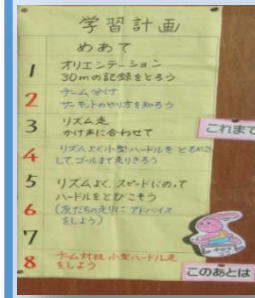 学習計画
めあて
1 オリエンテーション
30mの記録をとろう
2 チーム分け
サーキットのやり方を知ろう
3 リズム走
かけ声に合わせて
これまで
4 リズムよく小型ハードルを
してゴールまで走りきろう
5 リズムよく、スピードにのって
ハードルをとびこそう
6 (友だちの走りに アドバイス
をしよう)
7
8 チーム対抗 小型ハードル走
をしよう
このあとは